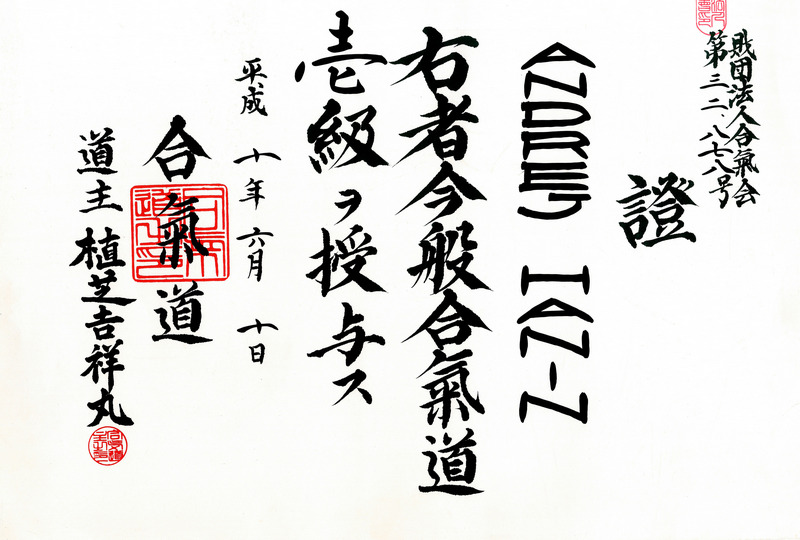 財団法人合氣会
第三二、八七八号
證
ANDREJ
右者今般合氣道
壱級ヲ授与ス
平成十年六月十日
合氣道
道主植芝吉祥丸